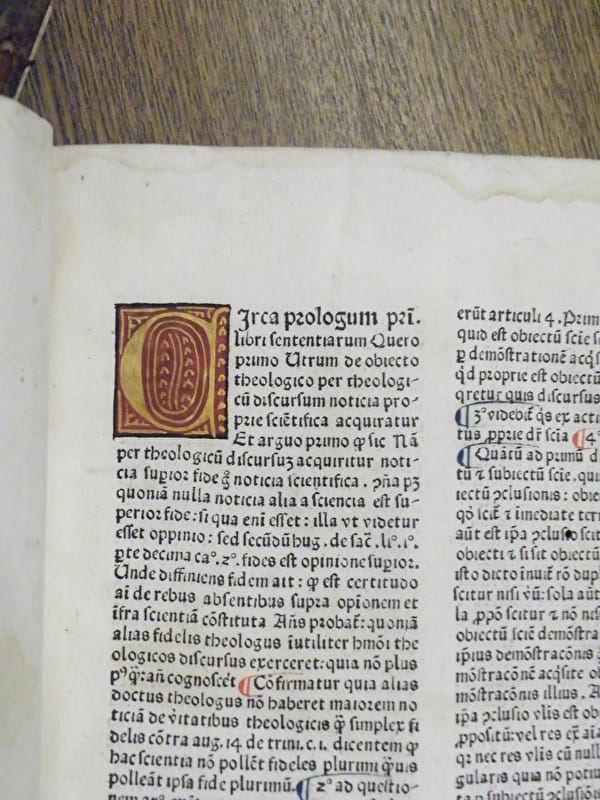 CJrca prologum pri̅.
libri sententiarum Quero
primo Utrum de obiecto
theologico per theologi-
cū discursum noticia pro-
prie sciētifica acquiratur
Et arguo primo ꝙ sic Nā
per theologicū discursuꝫ acquiritur noti-
cia suꝑior fide ḡ noticia scientifica . ꝯña pꝫ
quoniā nulla noticia alia a sciencia est su-
perior fide: si qua eni̅ esset: illa vt videtur
esset oppinio: sed secūdū hug. de sac̅. li°. i°.
ꝑte decima ca°. 2°. fides est opinione suꝑior.
Unde diffiniens fidem ait: ꝙ est certitudo
ai̅ de rebus absentibus supra opi̅onem et
i̅fra scientiā cōstituta Añs probat̄: quoniā
alias fidelis theologus i̅utiliter hmōi the
ologicos discursus exerceret: quia nō plus
cognoscēt ¶ Cōfirmatur quia alias
doctus theologus nō haberet maiorem no
ticiā de v̄itatibus theologicis ꝙ̄ simplex fi
delis cōtra aug. 14 de trini. c. i. dicentem ꝙ
hac scientia nō pollēt fideles plurimi
polleāt ipsa fide plurimū. ¶ 2° ad questio-
erūt articuli 4 . Prim
quid est obiectū scīe
ꝑ demōstrationē
ꝙ proprie est obiectū
qretur quis discursus
¶ 3° videbit̄ ex acti
tus ꝓprie dr̄ scīa ¶ 4°
¶ Quātū ad primū d
tū ⁊ subiectū scīe.
iectū ꝯclusionis:
⁊ imediate
aūt est ip̄a ꝯclusio
obiecti ⁊ si sit obiectū
isto dicto
scitur nisi sola
la scitur ⁊ nō
obiectū scīe
ip̄ius demōstracōnis
mōstracōnē
mōstracōnis illius. A
ip̄a ꝯclusio est ob
vel res
nec res
gularis quia nō
subiectū